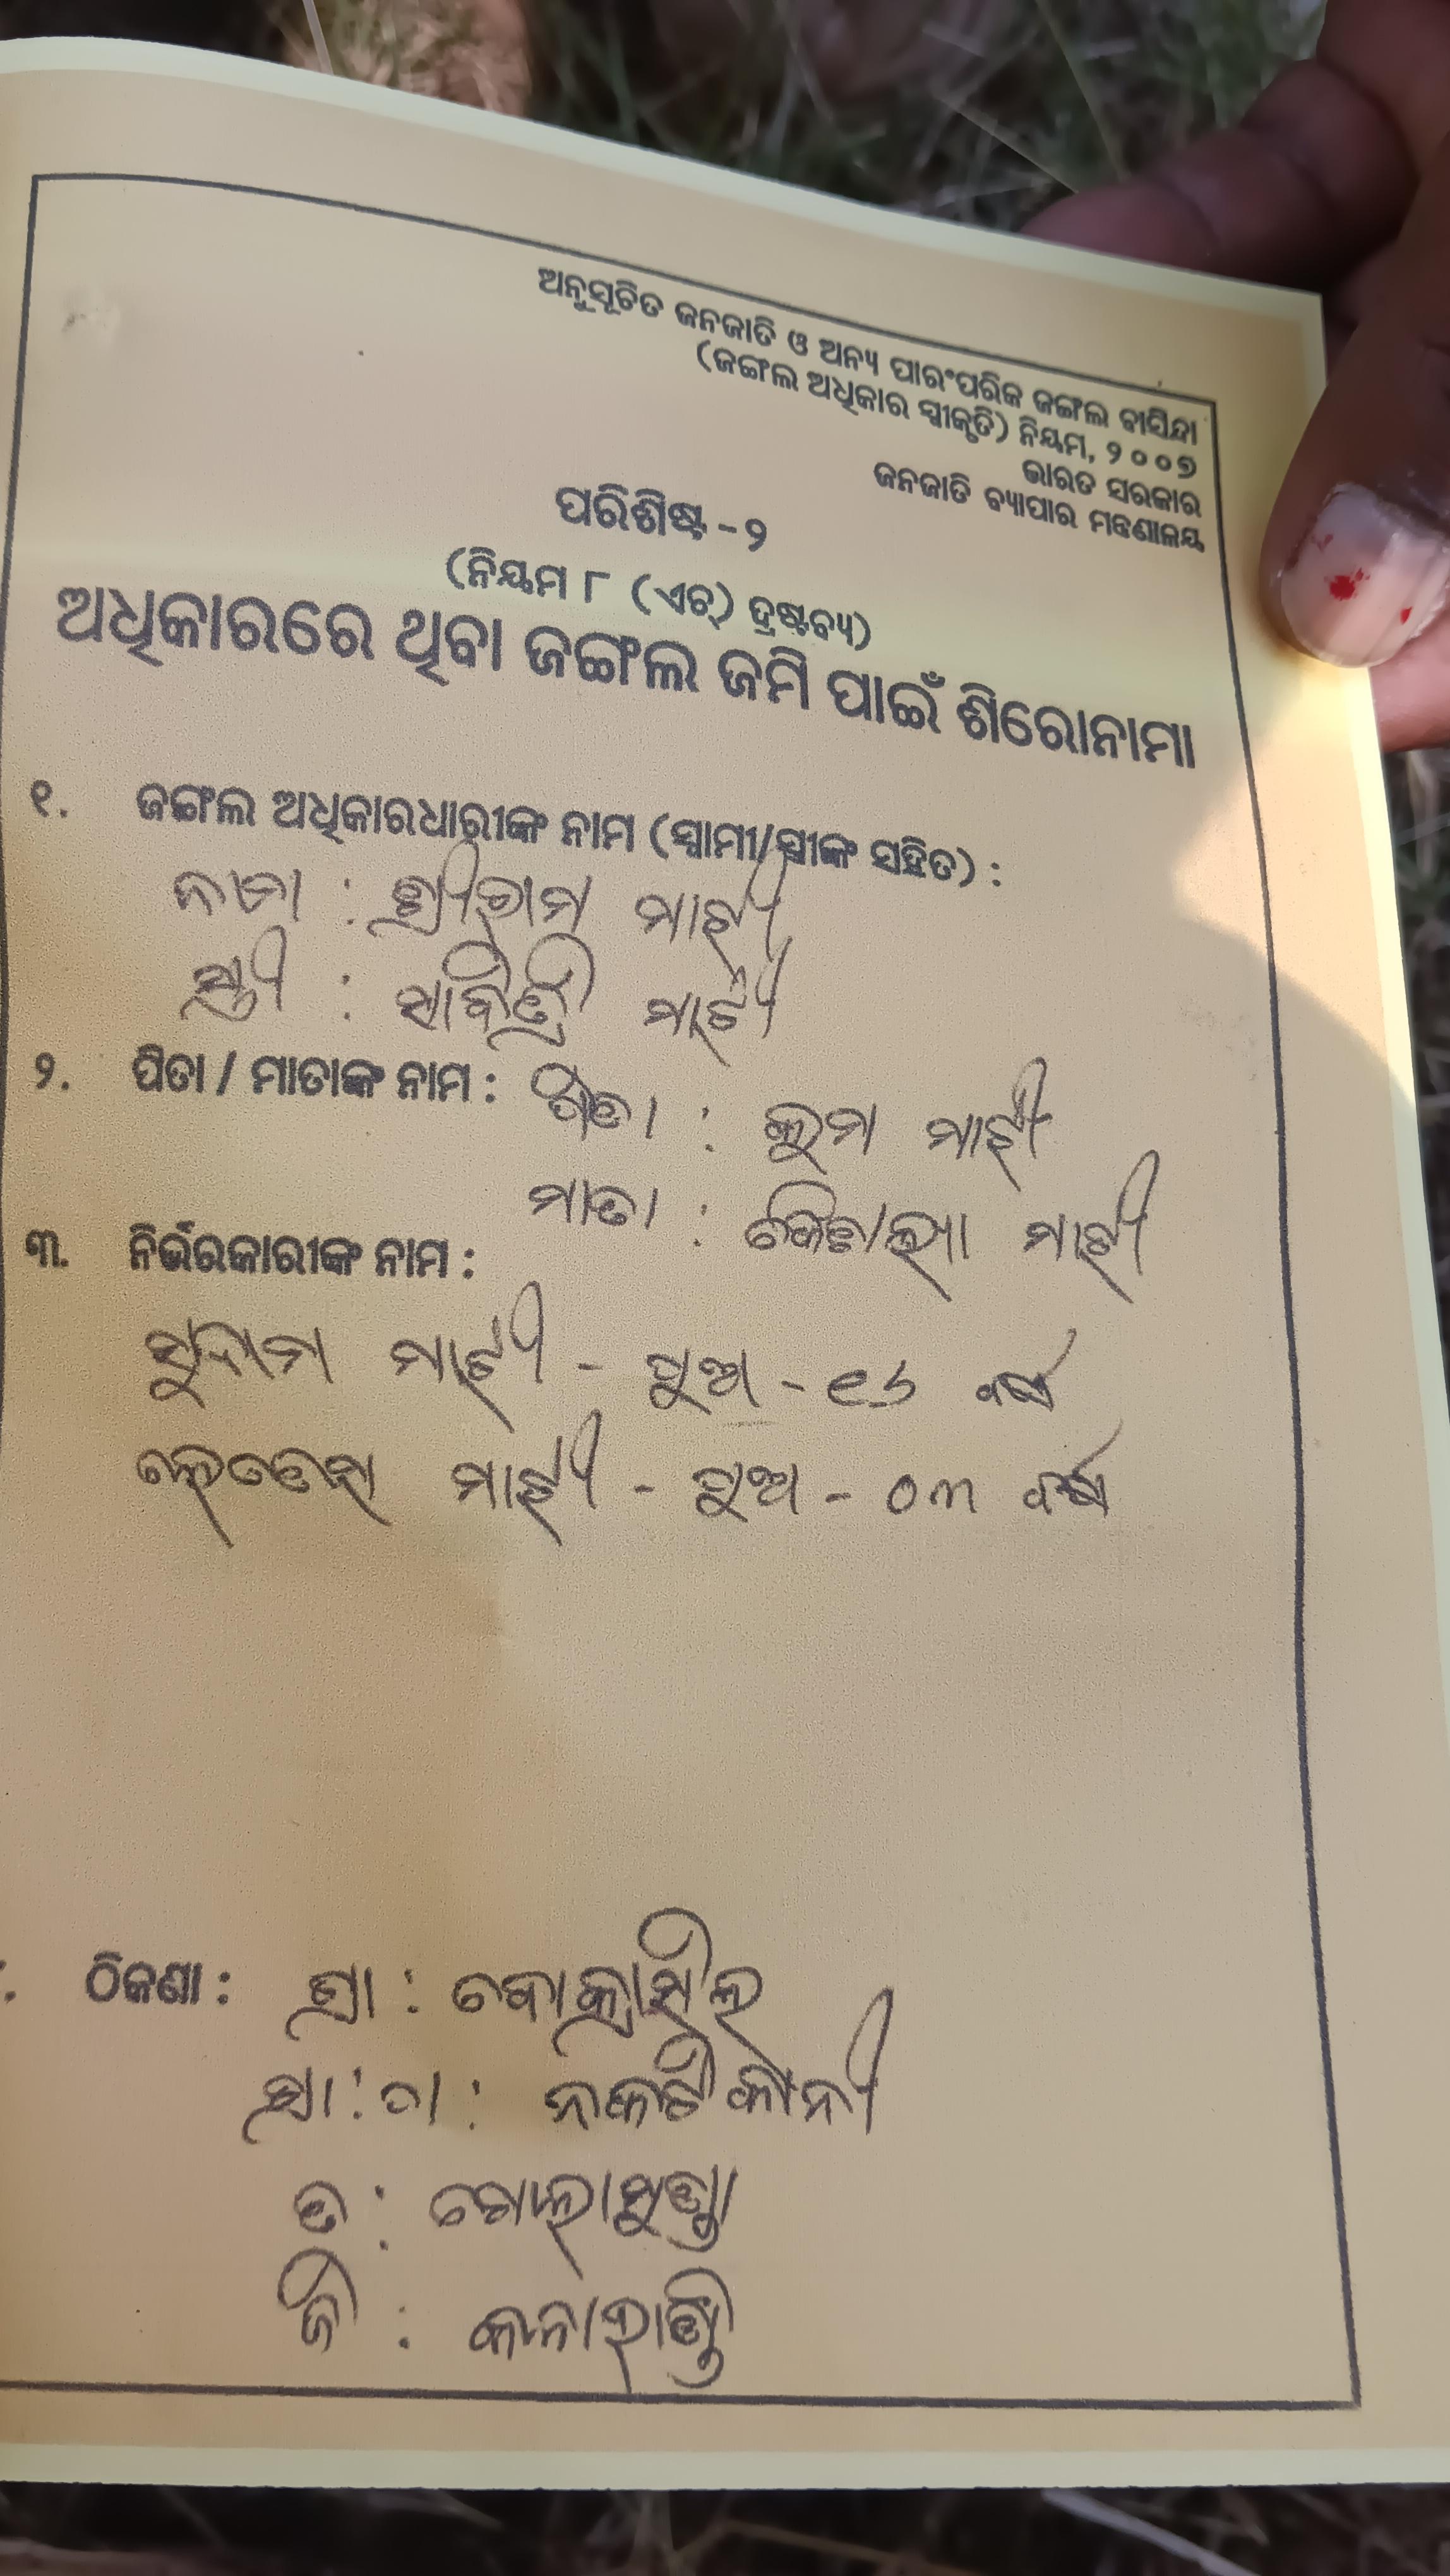 ଅନୁସୂଚିତ ଜନଜାତି ଓ ଅନ୍ୟ ପାରଂପରିକ ଜଙ୍ଗଲ ବାସିନ୍ଦା
(ଜଙ୍ଗଲ ଅଧିକାର ସ୍ୱୀକୃତି) ନିୟମ, ୨୦୦୭
ଭାରତ ସରକାର
ଜନଜାତି ବ୍ୟାପାର ମନ୍ତ୍ରଣାଳୟ
ପରିଶିଷ୍ଟ - ୨
(ନିୟମ ୮ (ଏଚ୍) ଦ୍ରଷ୍ଟବ୍ୟ)
ଅଧିକାରରେ ଥିବା ଜଙ୍ଗଲ ଜମି ପାଇଁ ଶିରୋନାମା
୧. ଜଙ୍ଗଲ ଅଧିକାରଧାରୀଙ୍କ ନାମ (ସ୍ୱାମୀ/ସ୍ତ୍ରୀଙ୍କ ସହିତ) :
ନାମ : ଶ୍ରୀରାମ ମାଝୀ
ସ୍ତ୍ରୀ : ସାବିତ୍ରି ମାଝୀ
୨. ପିତା / ମାତାଙ୍କ ନାମ : ପିତା : ଲୁମ ମାଝୀ
ମାତା : ମାଝୀ
୩. ନିର୍ଭରକାରୀଙ୍କ ନାମ :
ସୁଦାମ ମାଝୀ - ପୁଅ - ୧୬ ବର୍ଷ
ମାଝୀ - ପୁଅ - ୦୩ ବର୍ଷ
ଠିକଣା : ଗ୍ରା : ବୋକ୍ରାସିଲ
ଗ୍ରା : ପ : ନକଟିକାନୀ
ତ : ଗୋଲାମୁଣ୍ଡା
ଜି : କଳାହାଣ୍ଡି